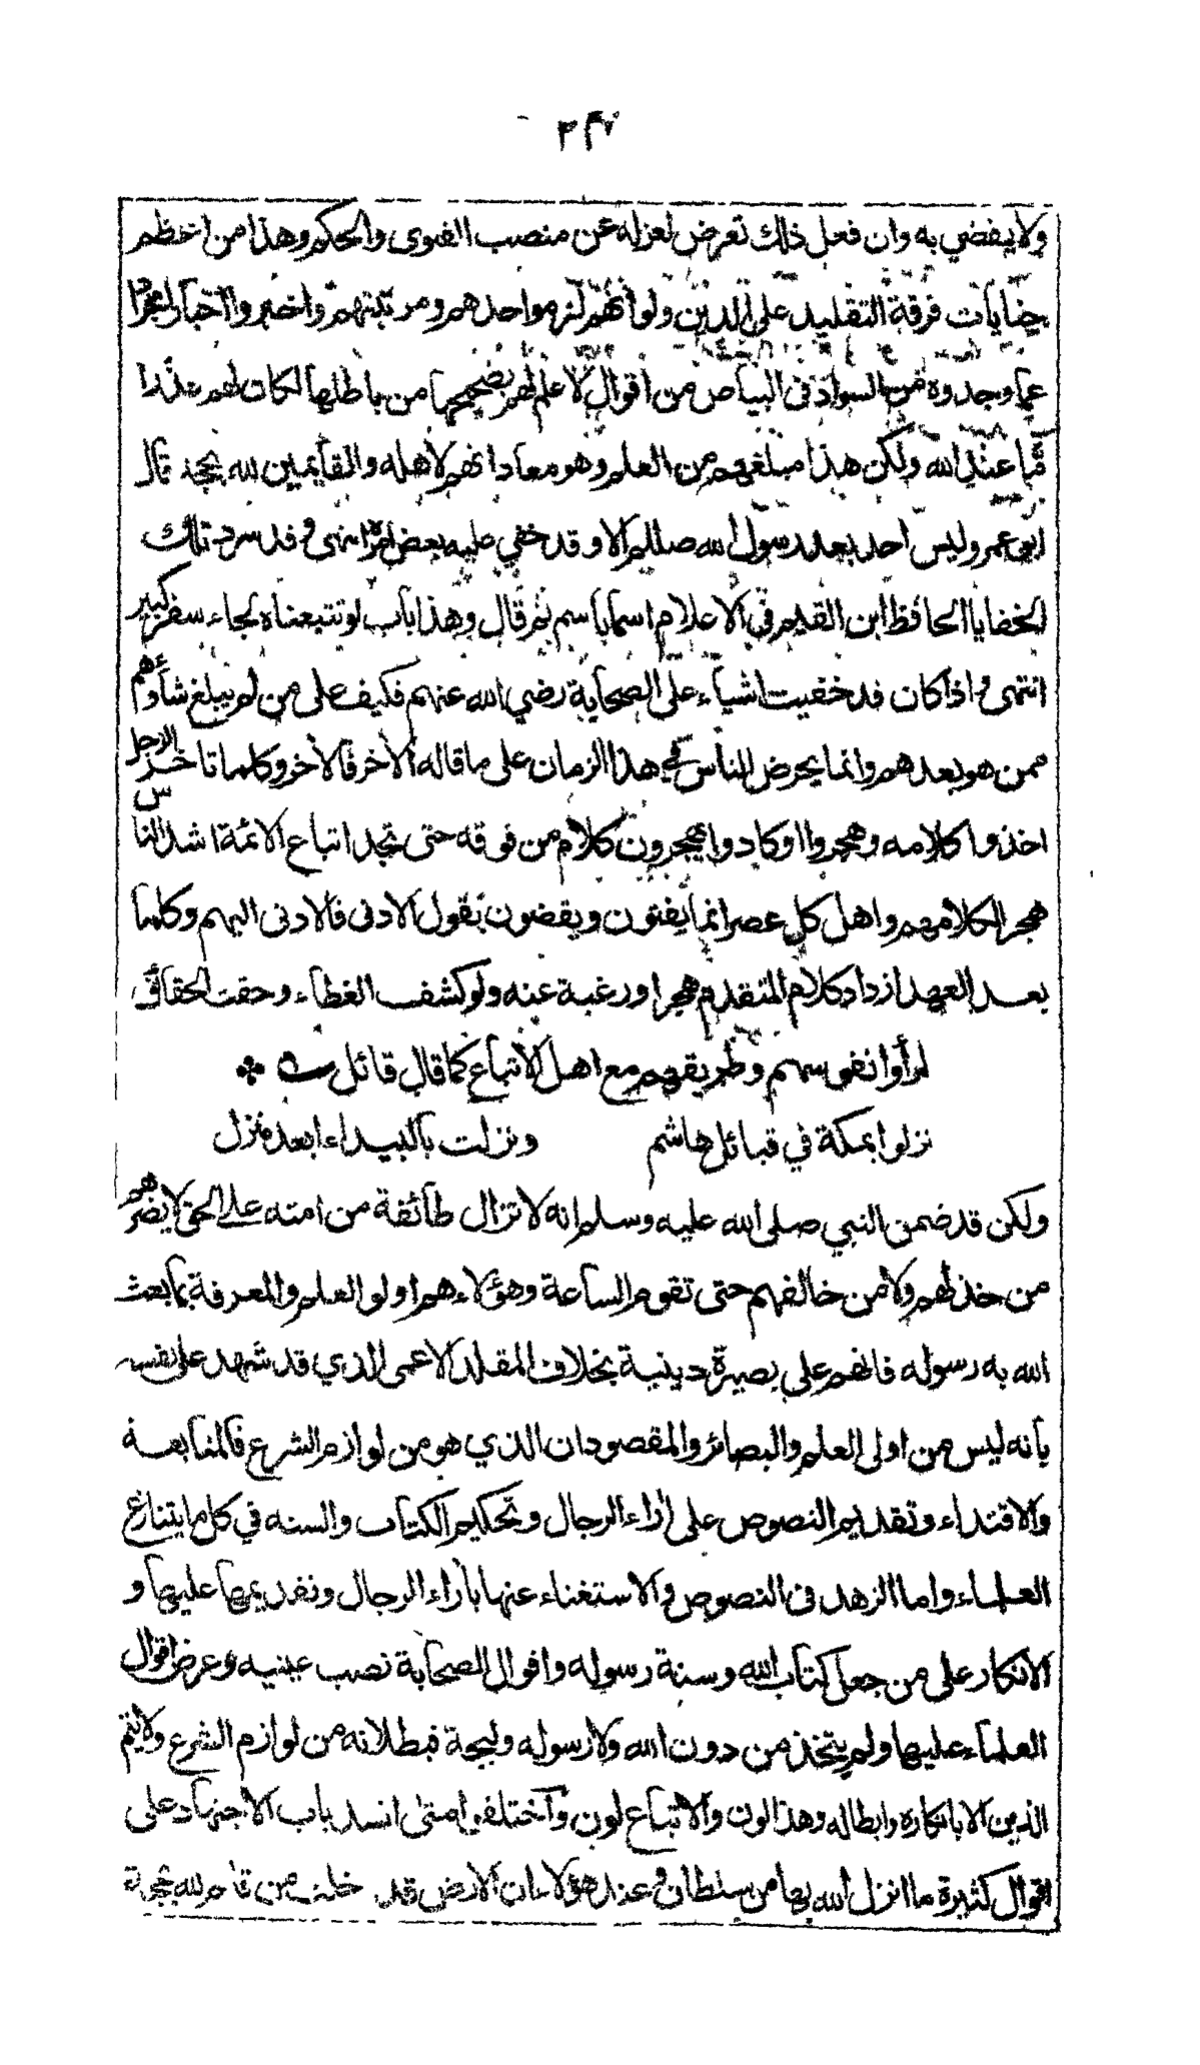 ولا يفضي به وان فعل ذلك تعرض لعزله عن منصب الفتوى والحكم وهذا من اعظم
جنايات فرقة التقليد على الدين ولو انهم لزموا حدهم ومرتبتهم واخبروا اخبارا مجردا
عما وجدوه من السواد في البياض من اقوال لا علم لهم بصحيحها من باطلها لكان لهم عذرا
ما عند الله ولكن هذا مبلغهم من العلم وهو معاداتهم لاهله والقائمين لله بحججه قال
ابو عمر وليس احد بعد رسول الله صللم الا وقد خفي عليه بعض امره انتهى وقد سرد تلك
الخفايا الحافظ ابن القيم في الاعلام اسما باسم ثم قال وهذا باب لو تتبعناه لجاء سفر كبير
انتهى واذا كان قد خفيت اشياء على الصحابة رضي الله عنهم فكيف على من لم يبلغ شأوهم
ممن هو بعدهم وانما يحرض الناس في هذا الزمان على ما قاله الآخر فالآخر وكلما تاخر الرجل
اخذوا كلامه وهجروا او كادوا يهجرون كلام من فوقه حتى تجد اتباع الائمة اشد الناس
هجرا لكلامهم واهل كل عصر انما يفتون ويقضون بقول الادنى فالادنى اليهم وكلما
بعد العهد ازداد كلام المتقدم هجرا ورغبة عنه ولو كشف الغطاء وحقت الحقائق
لرأوا نفوسهم وطريقهم مع اهل الاتباع كما قال قائل
نزلوا بمكة في قبائل هاشم ونزلت بالبيداء ابعد منزل
ولكن قد ضمن النبي صلى الله عليه وسلم انه لا تزال طائفة من امته على الحق لا يضرهم
من خذلهم ولا من خالفهم حتى تقوم الساعة وهؤلاء هم اولو العلم والمعرفة بما بعث
الله به رسوله فانهم على بصيرة دينية بخلاف المقلد الاعمى الذي قد شهد على نفسه
بانه ليس من اولى العلم والبصائر والمقصود ان الذي هو من لوازم الشرع فالمتابعة
والاقتداء وتقديم النصوص على آراء الرجال وتحكيم الكتاب والسنه في كل ما يتنازع
العلماء واما الزهد في النصوص والاستغناء عنها بآراء الرجال وتقديمها عليها و
الانكار على من جعل كتاب الله وسنة رسوله واقوال الصحابة نصب عينيه وعرض اقوال
العلماء عليها ولم يتخذ من دون الله ولا رسوله وليجة فبطلانه من لوازم الشرع ولا يتم
الدين الا بانكاره وابطاله وهذا لون والاتباع لون واختلفوا متى انسد باب الاجتهاد على
اقوال كثيرة ما انزل الله بها من سلطان وعند هؤلاء ان الارض قد خلت من قائم لله بحجة